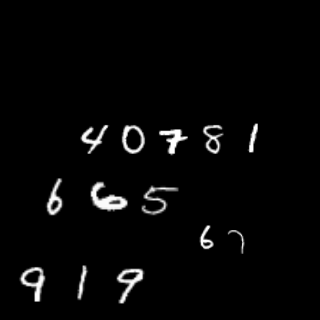 40781
665
67
919